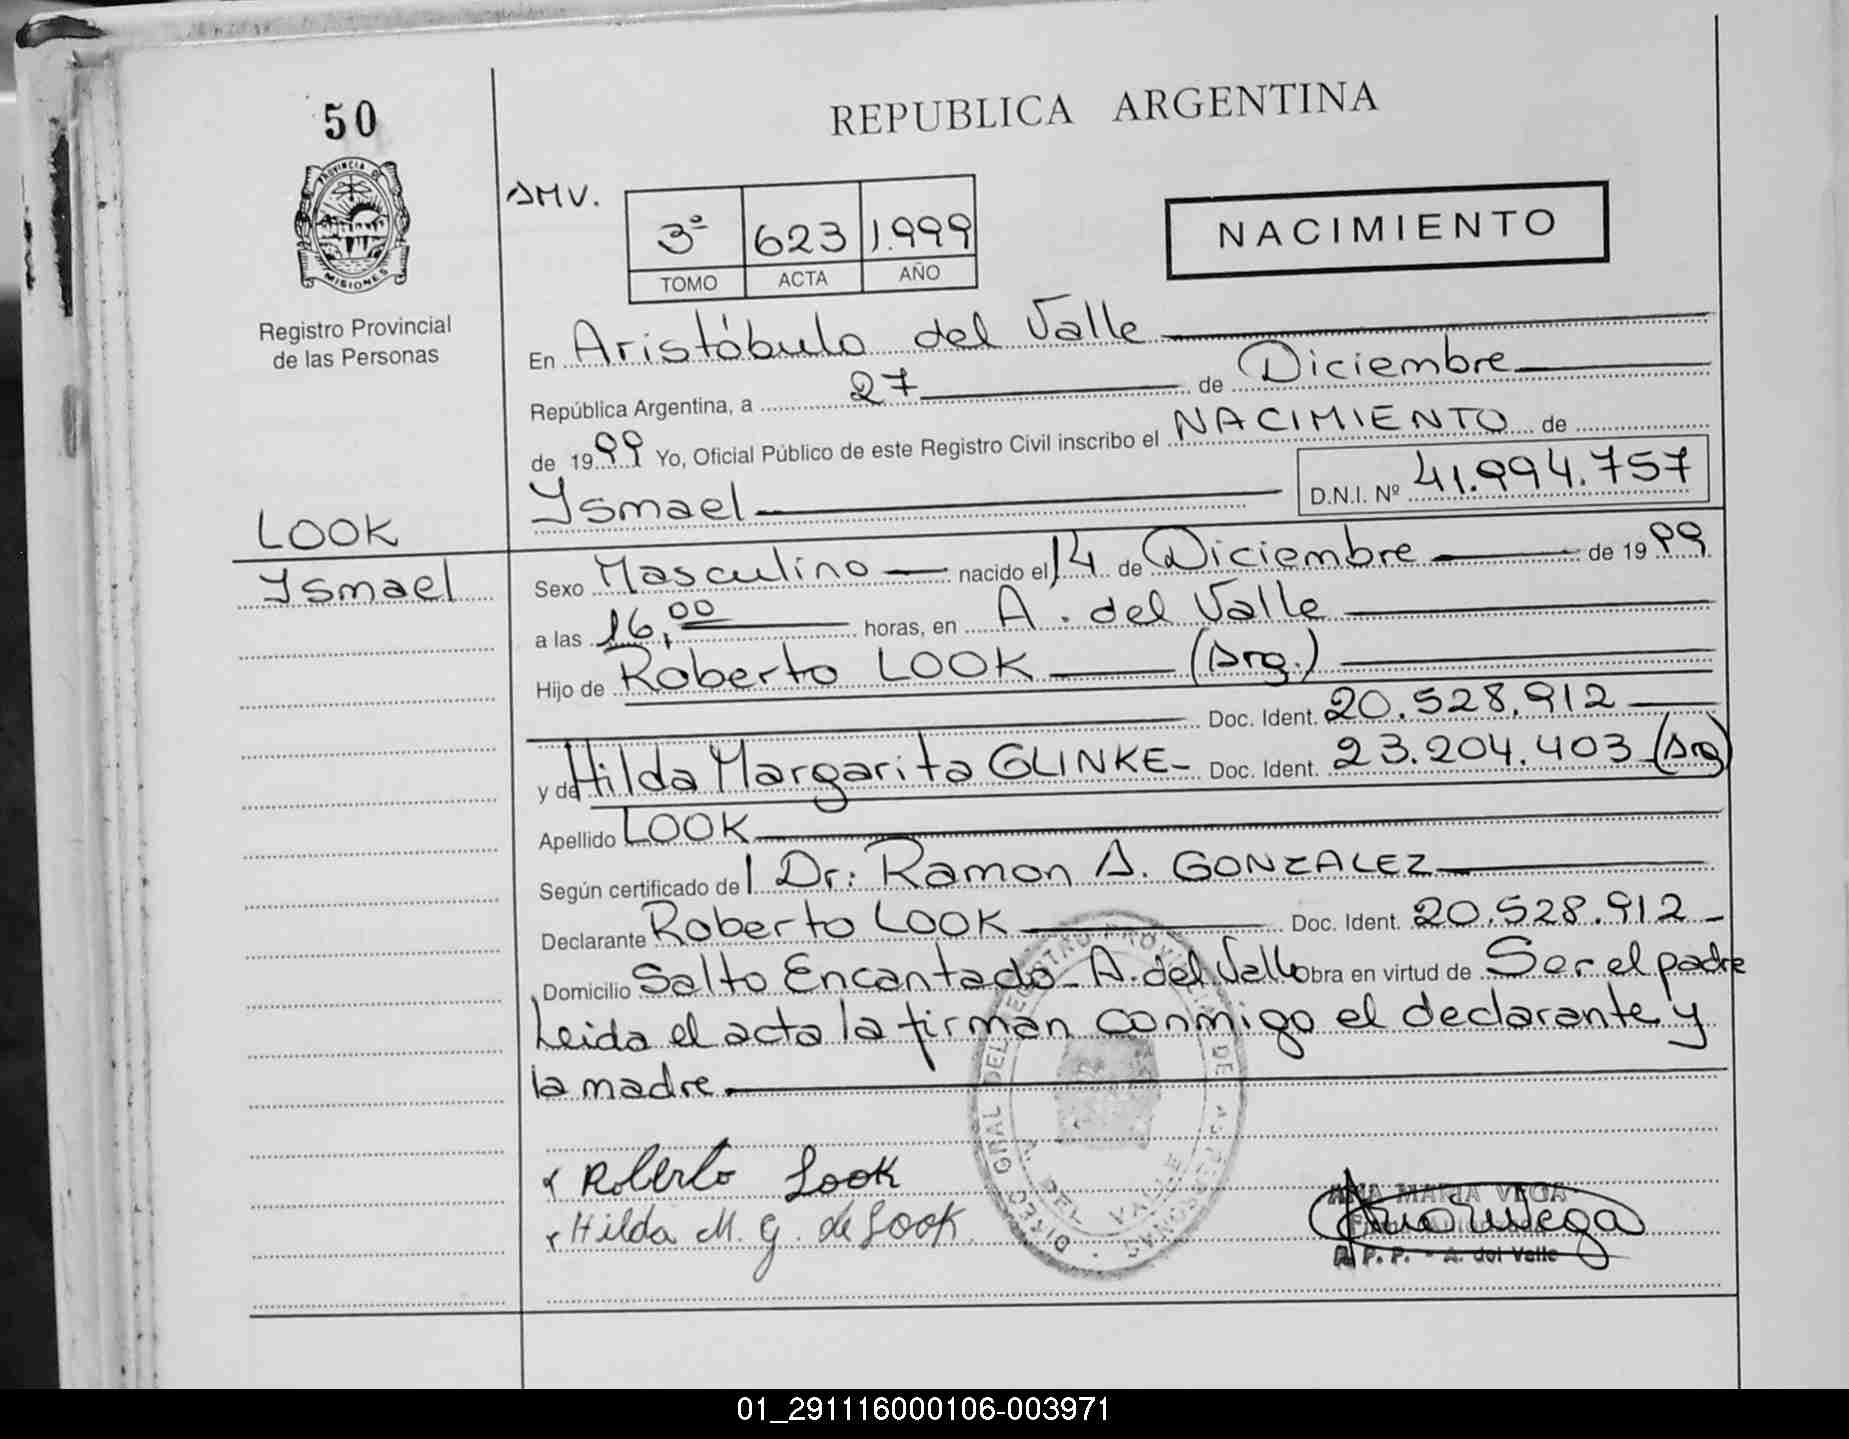 50
REPUBLICA ARGENTINA
PROVINCIA DE
MISIONES
Registro Provincial
de las Personas
AMV.
3º 623 1.999
TOMO ACTA AÑO
NACIMIENTO
En Aristóbulo del Valle
República Argentina, a 27 de Diciembre
de 1999 Yo, Oficial Público de este Registro Civil inscribo el NACIMIENTO de
Ysmael D.N.I. Nº 41.994.757
LOOK
Ysmael
Sexo Masculino nacido el 14 de Diciembre de 1999
a las 16,00 horas, en A. del Valle
Hijo de Roberto LOOK (Arg.)
Doc. Ident. 20.528.912
y de Hilda Margarita GLINKE- Doc. Ident. 23.204.403 (Arg)
Apellido LOOK
Según certificado del Dr: Ramon A. GONZALEZ
Declarante Roberto LOOK Doc. Ident. 20.528.912
Domicilio Salto Encantado - A. del Valle Obra en virtud de Ser el padre
Leida el acta la firman conmigo el declarante y
la madre
Roberto Look
Hilda M. G. de Look
DIREC. GRAL. DEL REGISTRO PROVINCIAL DE LAS PERSONAS
A. DEL VALLE
ANA MARIA VEGA
R. P. P. - A. del Valle
01_291116000106-003971